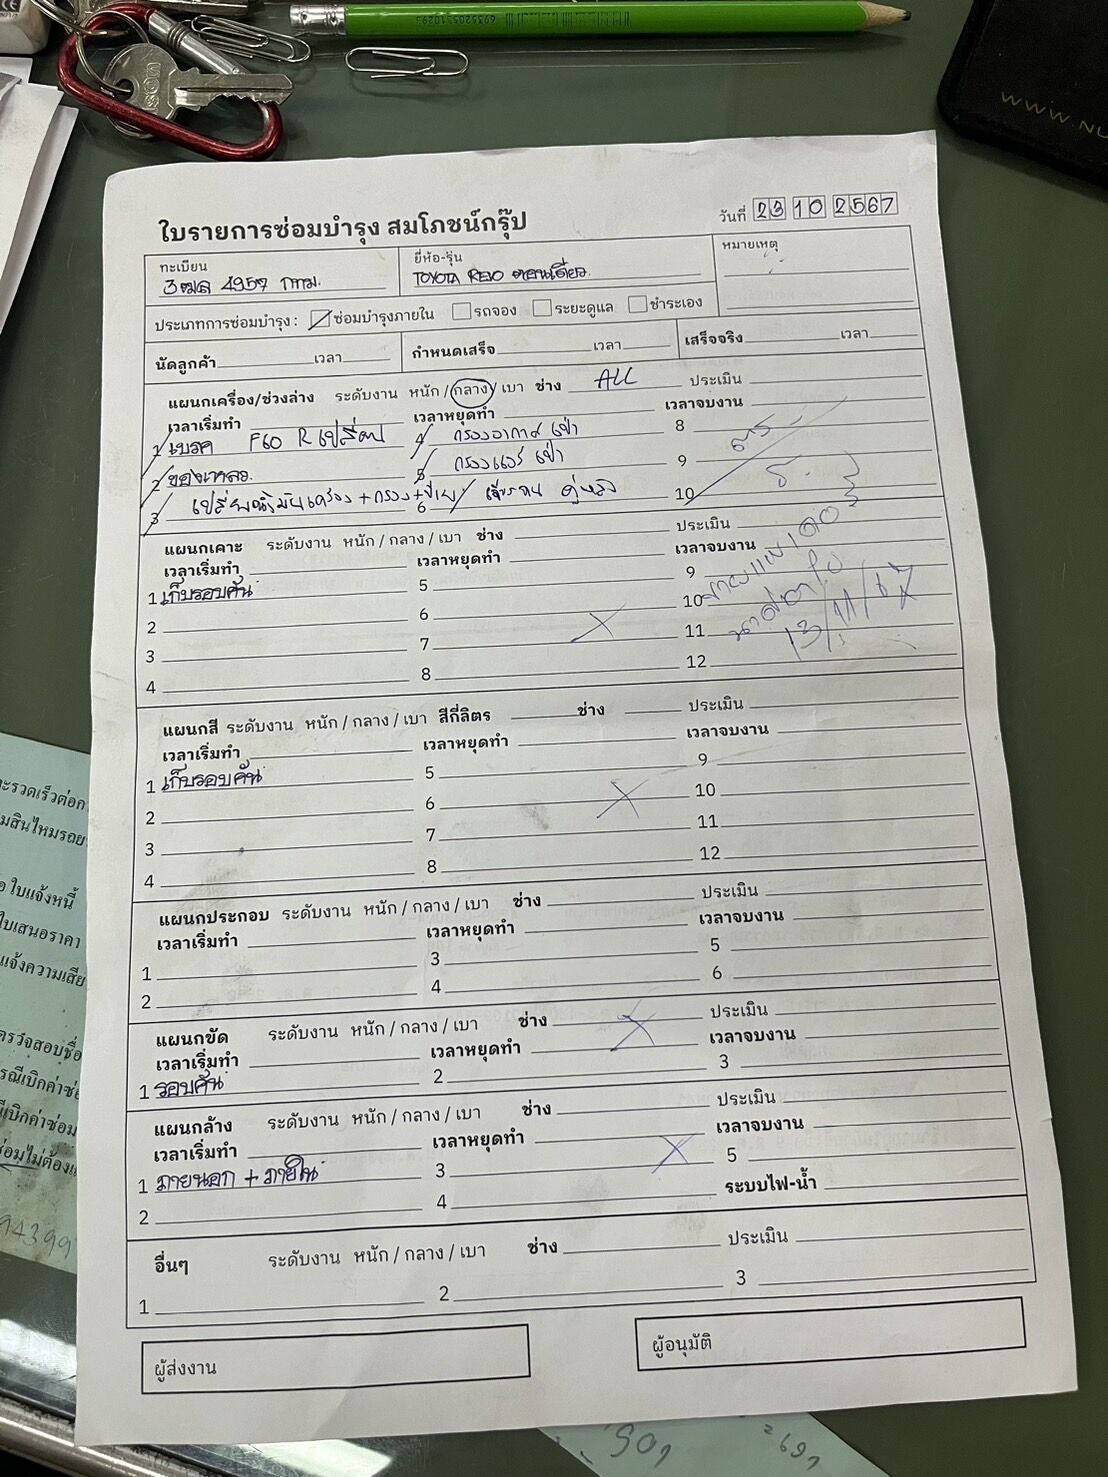 6935205310295
WWW.NU
ใบรายการซ่อมบำรุง สมโภชน์กรุ๊ป
วันที่ 23 10 2567
ทะเบียน
ยี่ห้อ-รุ่น
หมายเหตุ
3ฒล 4959 กทม.
TOYOTA REVO ตอนเดียว.
ประเภทการซ่อมบำรุง : ซ่อมบำรุงภายใน รถจอง ระยะดูแล ชำระเอง
นัดลูกค้า เวลา กำหนดเสร็จ เวลา เสร็จจริง เวลา
แผนกเครื่อง/ช่วงล่าง ระดับงาน หนัก / กลาง / เบา ช่าง ALL ประเมิน
เวลาเริ่มทำ เวลาหยุดทำ เวลาจบงาน
1 เบรค F60 R เปลี่ยน 4 กรองอากาศ เป่า 8
2 ของเหลว. 5 กรองแอร์ เป่า 9
3 เปลี่ยนน้ำมันเครื่อง + กรอง + 6 คู่หลัง 10
แผนกเคาะ ระดับงาน หนัก / กลาง / เบา ช่าง ประเมิน
เวลาเริ่มทำ เวลาหยุดทำ เวลาจบงาน
1 เก็บรอบคัน 5 9
2 6 10
3 7 11
4 8 12
13/11/67
แผนกสี ระดับงาน หนัก / กลาง / เบา สีกี่ลิตร ช่าง ประเมิน
เวลาเริ่มทำ เวลาหยุดทำ เวลาจบงาน
1 เก็บรอบคัน 5 9
2 6 10
3 7 11
4 8 12
แผนกประกอบ ระดับงาน หนัก / กลาง / เบา ช่าง ประเมิน
เวลาเริ่มทำ เวลาหยุดทำ เวลาจบงาน
1 3 5
2 4 6
แผนกขัด ระดับงาน หนัก / กลาง / เบา ช่าง ประเมิน
เวลาเริ่มทำ เวลาหยุดทำ เวลาจบงาน
1 รอบคัน 2 3
แผนกล้าง ระดับงาน หนัก / กลาง / เบา ช่าง ประเมิน
เวลาเริ่มทำ เวลาหยุดทำ เวลาจบงาน
1 ภายนอก + ภายใน 3 5
2 4 ระบบไฟ-น้ำ
อื่นๆ ระดับงาน หนัก / กลาง / เบา ช่าง ประเมิน
1 2 3
ผู้ส่งงาน
ผู้อนุมัติ
ะรวดเร็วต่อก
มสินไหมรถย
ใบแจ้งหนี้
ใบเสนอราคา
แจ้งความเสีย
ตรวจสอบชื่อ
รณีเบิกค่าซ่อ
นี้เบิกค่าซ่อม
ซ่อมไม่ต้อง
94399